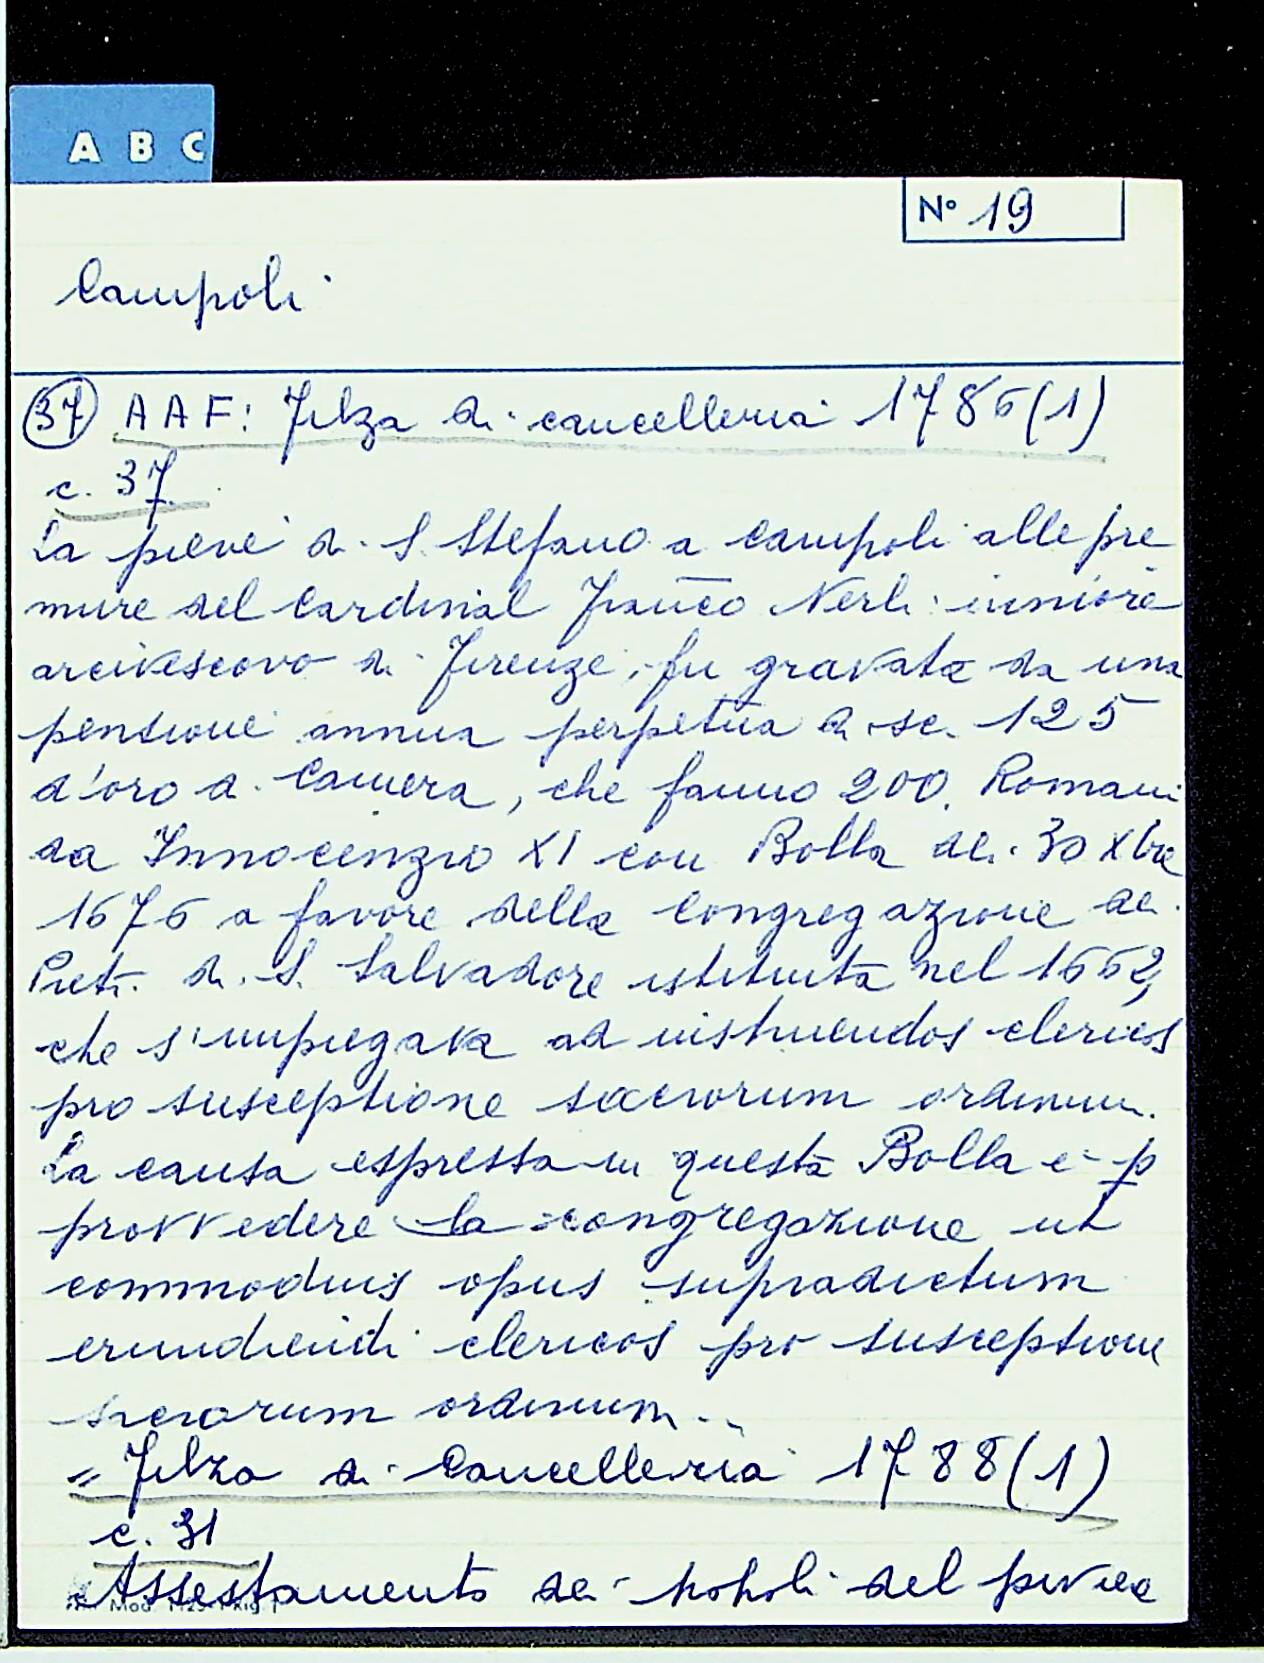 A B C
N° 19
Campoli
37 AAF: Filza di cancelleria 1786(1)
c. 37
La pieve di S. Stefano a Campoli alle pre
mure del Cardinal Franco Nerli iuniore
arcivescovo di Firenze, fu gravata da una
pensione annua perpetua di sc. 125
d'oro di Camera, che fanno 200. Romani
da Innocenzio XI con Bolla dei 30 Xbre
1676 a favore della Congregazione dei
Preti di S. Salvadore istituita nel 1662,
che s'impiegava ad instruendos clericos
pro susceptione sacrorum ordinum.
La causa espressa in questa Bolla è p
provvedere la congregazione ut
commodius opus supradictum
erundiendi clericos pro susceptione
sacrorum ordinum..
= Filza di Cancelleria 1788(1)
c. 31
Assestamento dei popoli del piviere